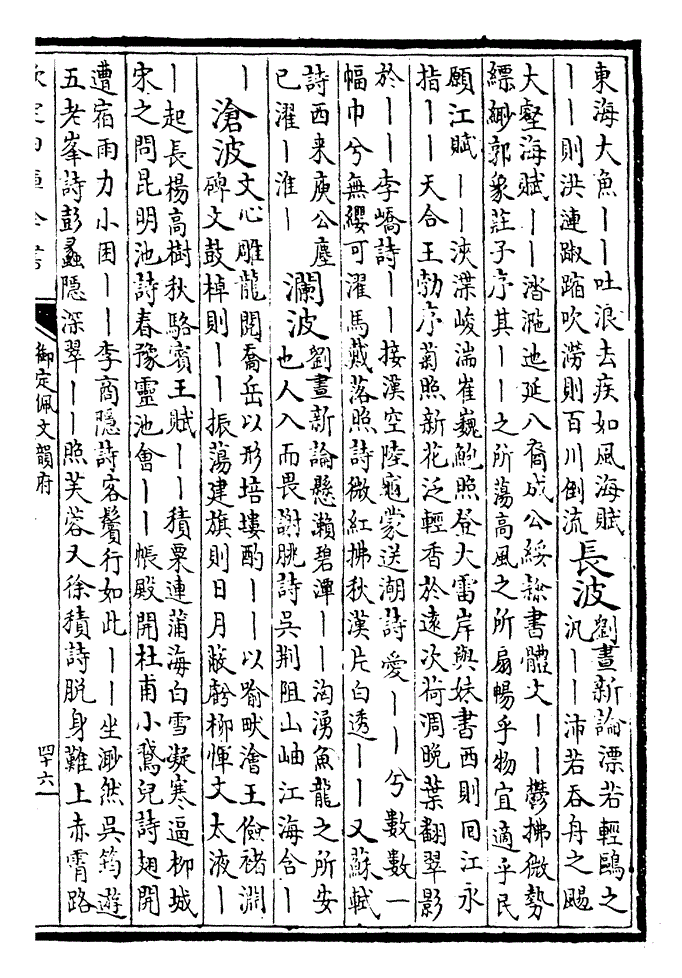 東海大魚丨丨吐浪去疾如風海賦
丨丨則洪漣踧蹜吹澇則百川倒流
長波
劉晝新論漂若輕鷗之
汎丨丨沛若吞舟之颺
大壑海賦丨丨㳫㴰迆延八裔成公綏隸書體文丨丨鬱拂微勢
縹緲郭象莊子序其丨丨之所蕩高風之所扇暢乎物宜適乎民
願江賦丨丨浹渫峻湍崔巍鮑照登大雷岸與妹書西則囘江永
指丨丨天合王勃序菊照新花泛輕香於遠次荷凋晚葉翻翠影
於丨丨李嶠詩丨丨接漢空陸龜蒙送潮詩愛丨丨兮數數一
幅巾兮無纓可濯馬戴落照詩微紅拂秋漢片白透丨丨又蘇軾
詩西来庾公塵
已濯丨淮丨
瀾波
劉晝新論懸瀨碧潭丨丨洶湧魚龍之所安
也人入而畏謝朓詩吳荆阻山岫江海含丨
丨
滄波
文心雕龍閱喬岳以形培塿酌丨丨以喻畎澮王儉禇淵
碑文鼓棹則丨丨振蕩建旗則日月蔽虧柳惲文太液丨
丨起長楊高樹秋駱賔王賦丨丨積粟連蒲海白雪凝寒逼柳城
宋之問昆明池詩春豫靈池會丨丨帳殿開杜甫小鵞兒詩翅開
遭宿雨力小困丨丨李商隱詩客鬢行如此丨丨坐渺然吳筠遊
五老峯詩彭蠡隱深翠丨丨照芙蓉又徐積詩脱身難上赤霄路
欽定四庫全書
御定佩文韻府
四十六